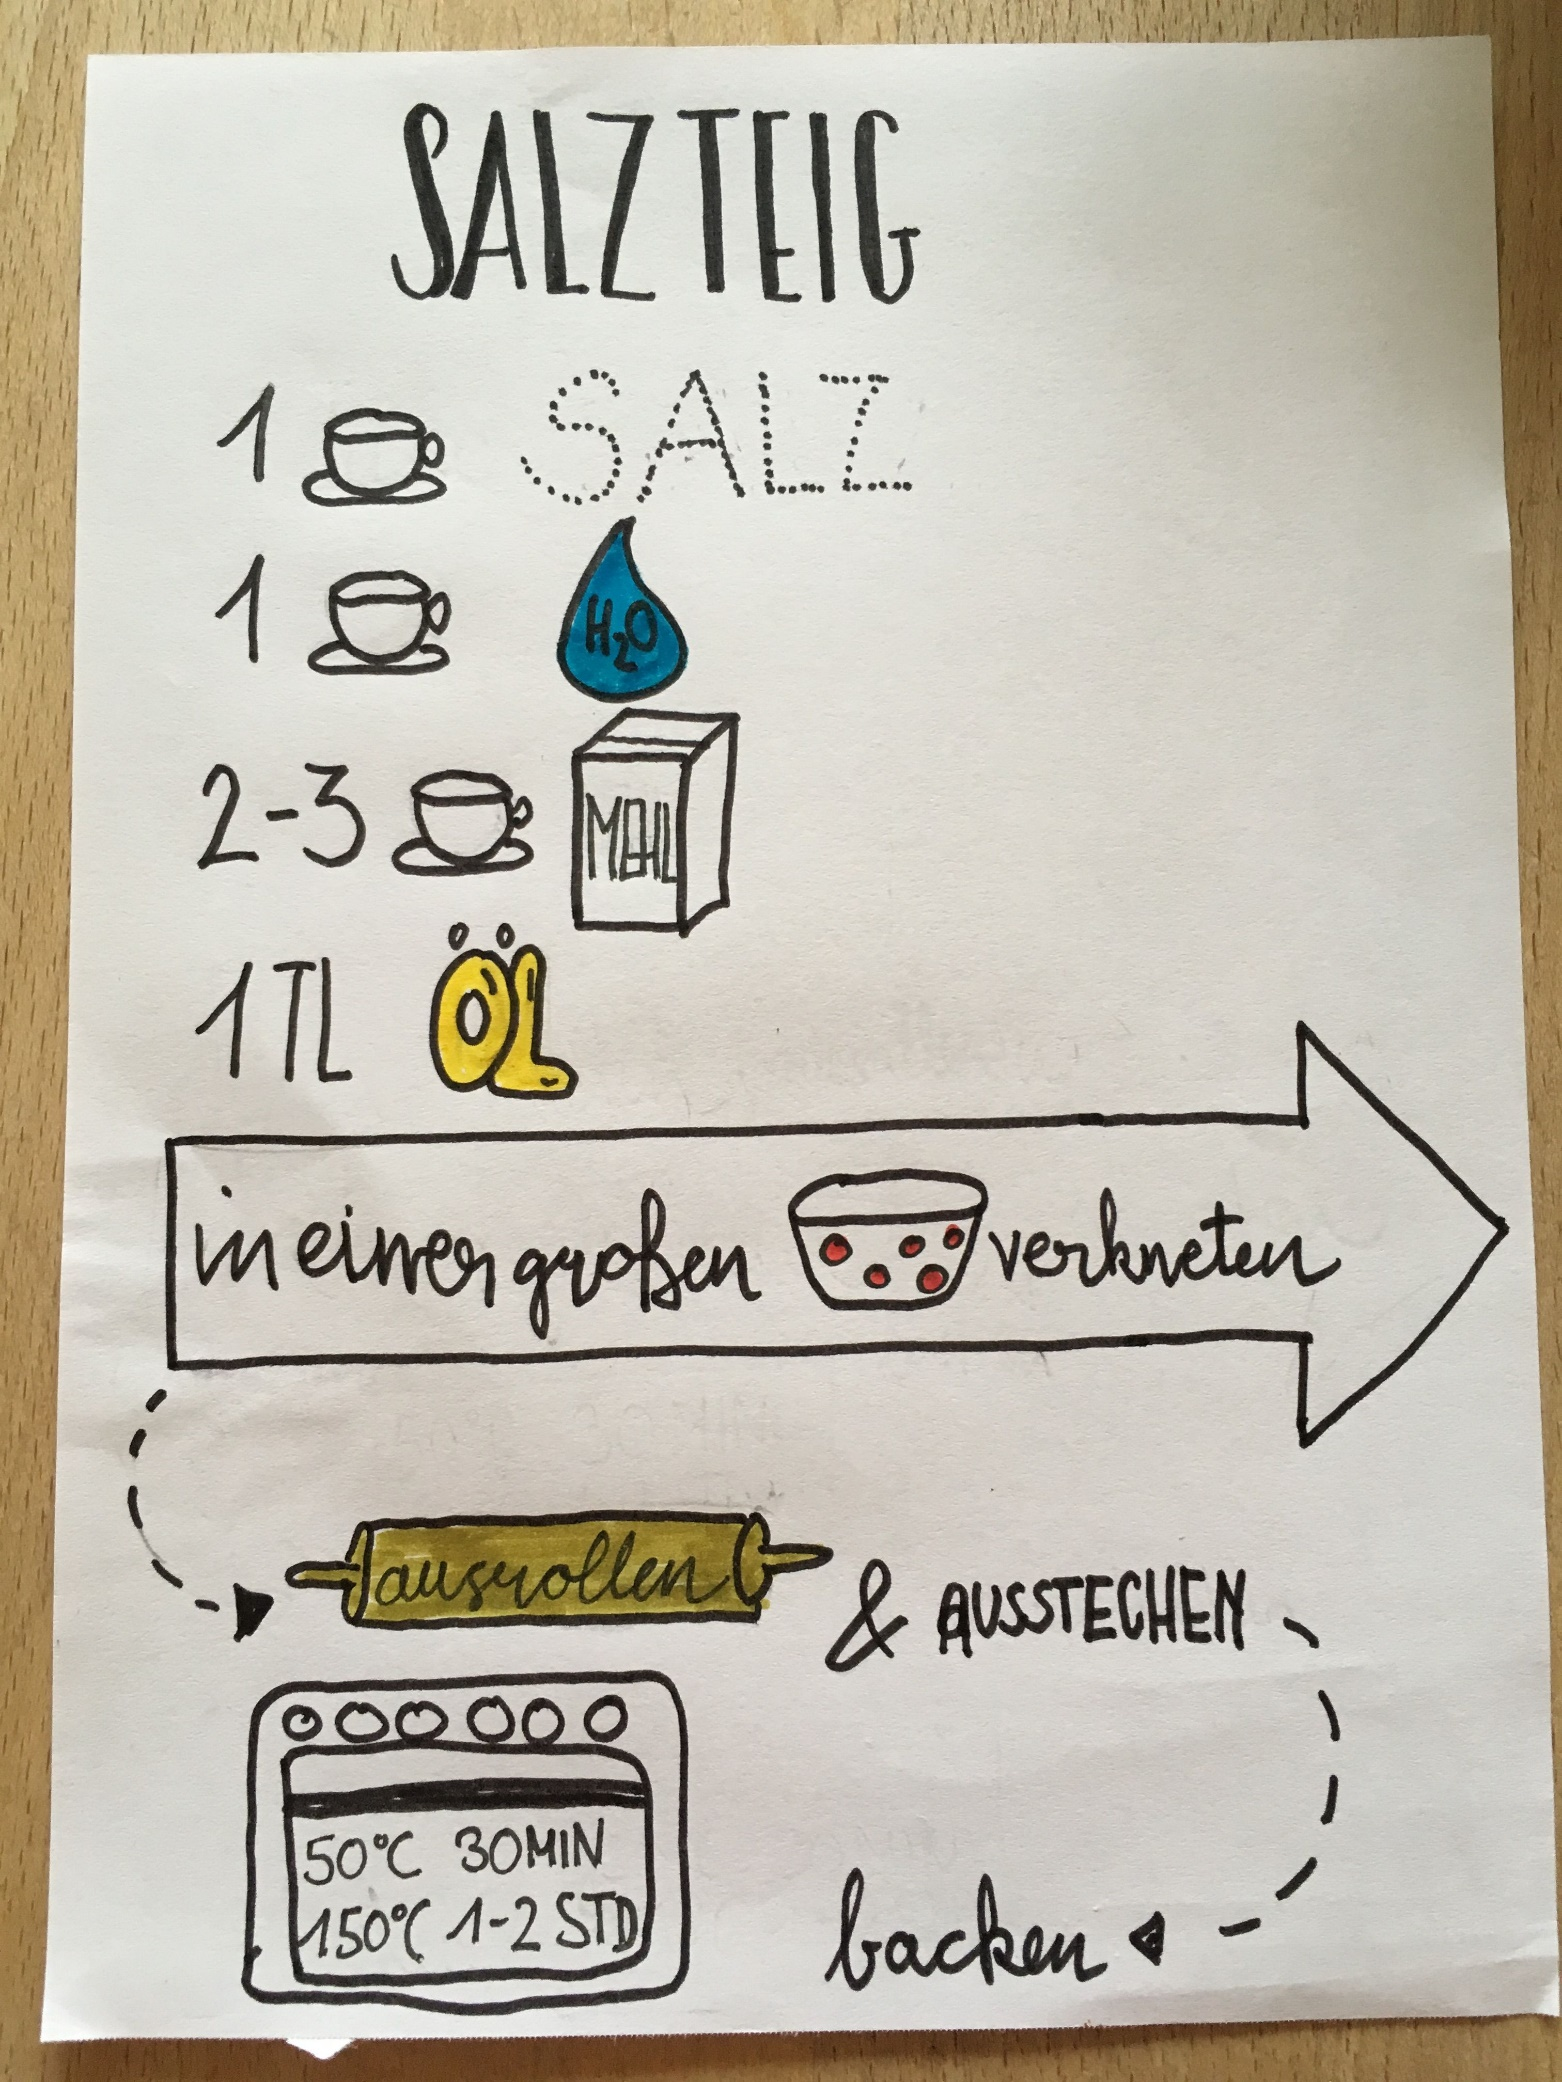 SALZTEIG
1 SALZ
1 H₂O
2-3 MEHL
1 TL ÖL
in einer großen verkneten
ausrollen & AUSSTECHEN
50°C 30MIN
150°C 1-2 STD
backen